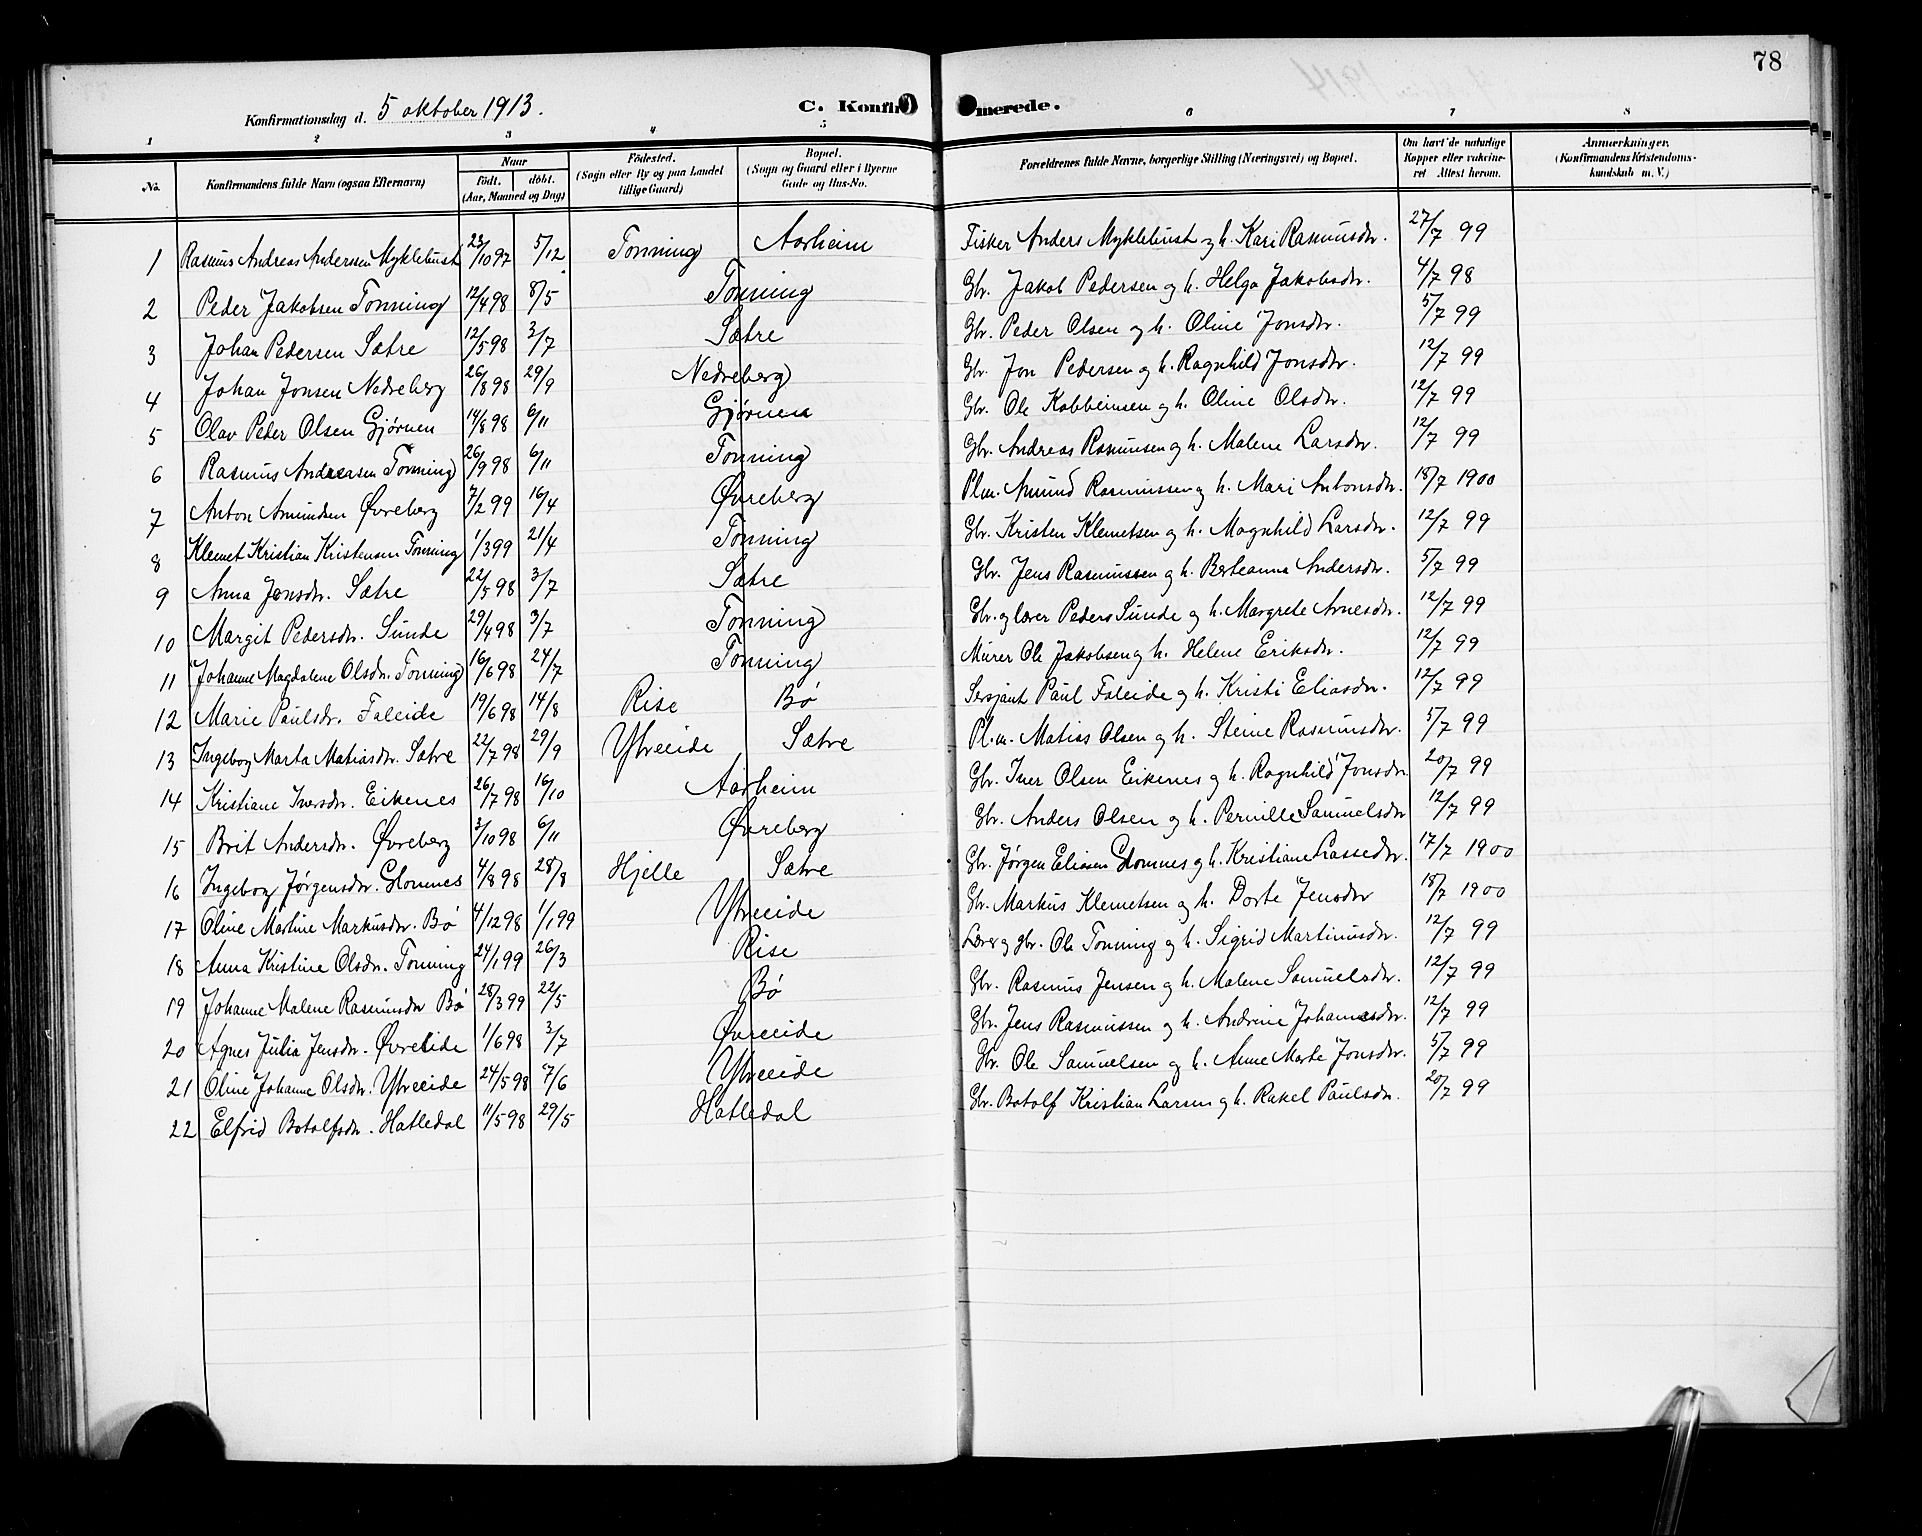 78
Konfirmationsdag d. 5 oktober 1913.
C. Konfir merede.
1 2 3 4 5 6 7 8
No. Konfirmandens fulde Navn (ogsaa Efternavn) Naar födt. döbt. (Aar, Maaned og Dag) Födested. (Sogn eller By og paa Landet tillige Gaard) Bopæl. (Sogn og Gaard eller i Byerne Gade og Hus-No. Forældrenes fulde Navne, borgerlige Stilling (Næringsvei) og Bopæl. Om havt de naturlige Kopper eller vakcineret Attest herom. Anmærkninger. (Konfirmandens Kristendomskundskab m. V.)
1 Rasmus Andreas Anderssen Myklebust 23/10 97 5/12 Tonning Aarheim Fisker Anders Myklebust og h. Kari Rasmusdtr. 27/7 99
2 Peder Jakobsen Tonning 12/4 98 8/5 Tonning Gbr. Jakob Pedersen og h. Helga Jakobsdtr. 4/7 98
3 Johan Pedersen Sætre 12/5 98 3/7 Sætre Gbr. Peder Olsen og h. Oline Jonsdtr. 5/7 99
4 Johan Jonsen Nedreberg 26/8 98 29/9 Nedreberg Gbr. Jon Pedersen og h. Ragnhild Jonsdtr. 12/7 99
5 Olav Peder Olsen Gjørnen 14/8 98 6/11 Gjørnen Gbr. Ole Kobbeinsen og h. Oline Olsdtr. 12/7 99
6 Rasmus Andreasen Tonning 26/9 98 6/11 Tonning Gbr. Andreas Rasmusen og h. Malene Larsdtr. 12/7 99
7 Anton Amundsen Øvreberg 7/2 99 16/4 Øvreberg Plm. Amund Rasmussen og h. Mari Antonsdtr. 18/7 1900
8 Klemet Kristian Kristensen Tonning 1/3 99 21/4 Tonning Gbr. Kristen Klemetsen og h. Magnhild Larsdtr. 12/7 99
9 Anna Jensdtr. Sætre 22/5 98 3/7 Sætre Gbr. Jens Rasmussen og h. Berteanna Andersdtr. 5/7 99
10 Margit Pedersdtr. Sunde 29/4 98 3/7 Tonning Gbr. og lærer Peders Sunde og h. Margrete Arnesdtr. 12/7 99
11 Johanne Magdalene Olsdtr. Tonning 16/6 98 24/7 Tonning Murer Ole Jakobsen og h. Helene Eriksdtr. 12/7 99
12 Marie Paulsdtr. Faleide 19/6 98 14/8 Rise Bø Sersjant Paul Faleide og h. Kristi Eliasdtr. 12/7 99
13 Ingeborg Marta Matiasdtr. Sætre 22/7 98 29/9 Ytreeide Sætre Pl.m. Matias Olsen og h. Steine Rasmusdtr. 5/7 99
14 Kristiane Iversdtr. Eikenes 26/7 98 16/10 Aarheim Gbr. Iver Olsen Eikenes og h. Ragnhild Jonsdtr 20/7 99
15 Brit Andersdtr. Øvreberg 3/10 98 6/11 Øvreberg Gbr. Anders Olsen og h. Pernille Samuelsdtr 12/7 99
16 Ingeborg Jørgensdtr. Glomnes 4/8 98 28/8 Hjelle Sætre Gbr. Jørgen Eliasen Glomnes og h. Kristiane Lassedtr. 17/7 1900
17 Oline Martine Markusdtr. Bø 4/12 98 1/1 99 Ytreeide Gbr. Markus Klemetsen og h. Dorte Jensdtr 18/7 1900
18 Anna Kristine Olsdtr. Tonning 24/1 99 26/3 Rise Lærer og gbr. Ole Tonning og h. Sigrid Martinusdtr. 12/7 99
19 Johanne Malene Rasmusdtr Bø 28/3 99 22/5 Bø Gbr. Rasmus Jensen og h. Malene Samuelsdtr. 12/7 99
20 Agnes Julia Jensdtr. Øvreeide 1/6 98 3/7 Øvreeide Gbr. Jens Rasmussen og h. Andrine Johannesdtr. 12/7 99
21 Oline Johanne Olsdtr. Ytreeide 24/5 98 7/6 Ytreeide Gbr. Ole Samuelsen og h. Anne Marte Jonsdtr. 5/7 99
22 Elfrid Botolfsdtr. Hatledal 11/5 98 29/5 Hatledal Gbr. Botolf Kristian Larsen og h. Rakel Paulsdtr. 20/7 99